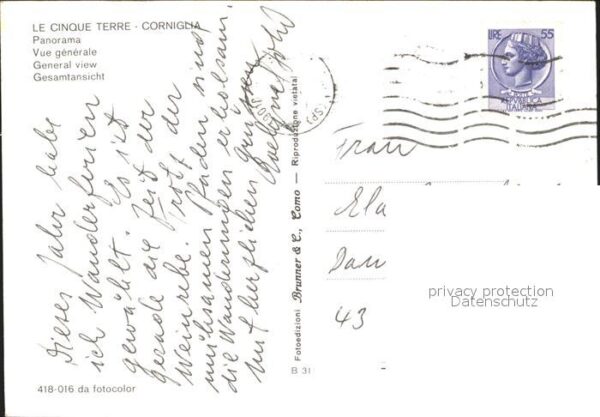 LE CINQUE TERRE - CORNIGLIA
Panorama
Vue générale
General view
Gesamtansicht
Dieses Jahr habe
ich Wanderferien
gewählt. Es ist
gerade die Zeit der
Weinrebe. Trotz der
mühsamen Pfaden sind
die Wanderungen erholsam.
Mit herzlichen Grüssen
418-016 da fotocolor
Fotoedizioni Brunner & C., Como — Riproduzione vietata
B 31
LIRE 55
REPVBBLICA
ITALIANA
Frau
Ela
Dau
43
privacy protection
Datenschutz